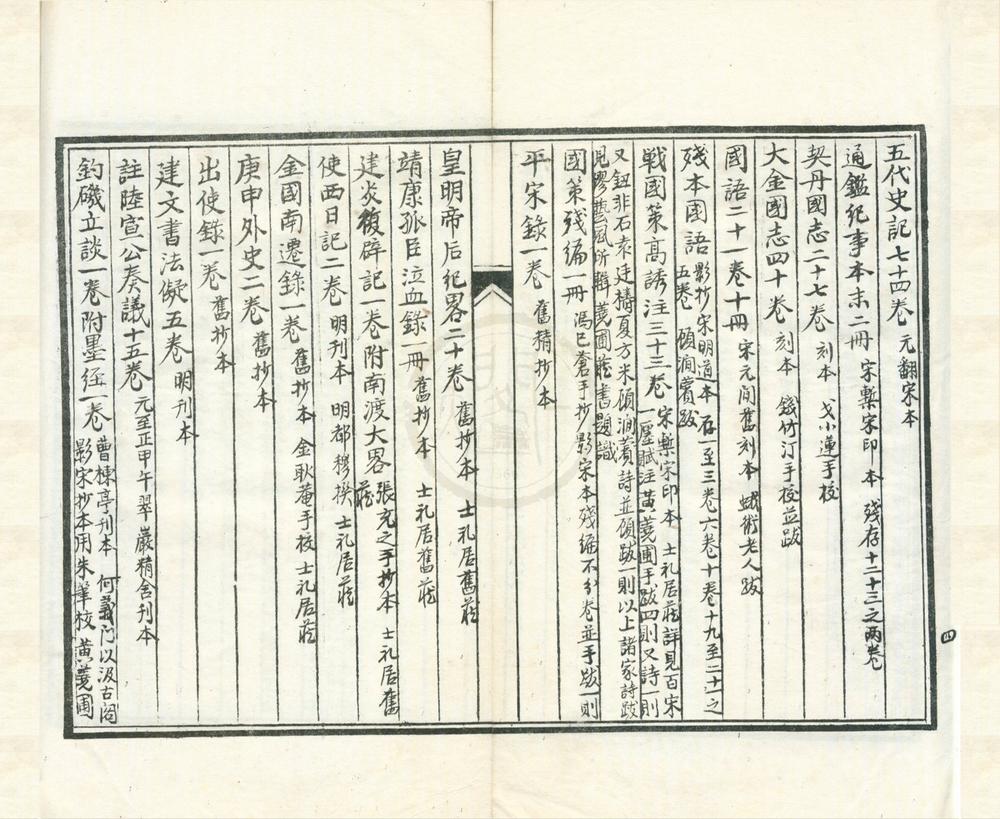 五代史記七十四卷 元翻宋本
通鑑紀事本末二冊 宋槧宋印本 殘存十二十三之兩卷
契丹國志二十七卷 刻本 戈小蓮手校
大金國志四十卷 刻本 錢竹汀手校並跋
國語二十一卷十冊 宋元間舊刻本 蛾術老人跋
殘本國語 影抄宋明道本 存一至三卷六卷十卷十九至二十一之
五卷 顧澗薲跋
戰國策高誘注三十三卷 宋槧宋印本 士礼居藏詳見百宋
一廛賦注黃蕘圃手跋四則又詩一則
又鈕非石袁廷檮夏方米顧澗薲詩並顧跋一則以上諸家詩跋
見繆藝風所輯蕘圃藏書題識
國策殘編一冊 馮已蒼手抄影宋本殘編不分卷並手跋一則
平宋錄一卷 舊精抄本
皇明帝后紀畧二十卷 舊抄本 士礼居舊藏
靖康孤臣泣血錄一冊 舊抄本 士礼居舊藏
建炎復辟記一卷附南渡大畧 張充之手抄本 士礼居舊
藏
使西日記二卷 明刊本 明都穆撰 士礼居藏
金國南遷錄一卷 舊抄本 金耿菴手校 士礼居藏
庚申外史二卷 舊抄本
出使錄一卷 舊抄本
建文書法儗五卷 明刊本
註陸宣公奏議十五卷 元至正甲午翠巖精舍刊本
釣磯立談一卷附墨經一卷 曹楝亭刊本 何義門以汲古閣
影宋抄本用朱筆校 黃蕘圃
四